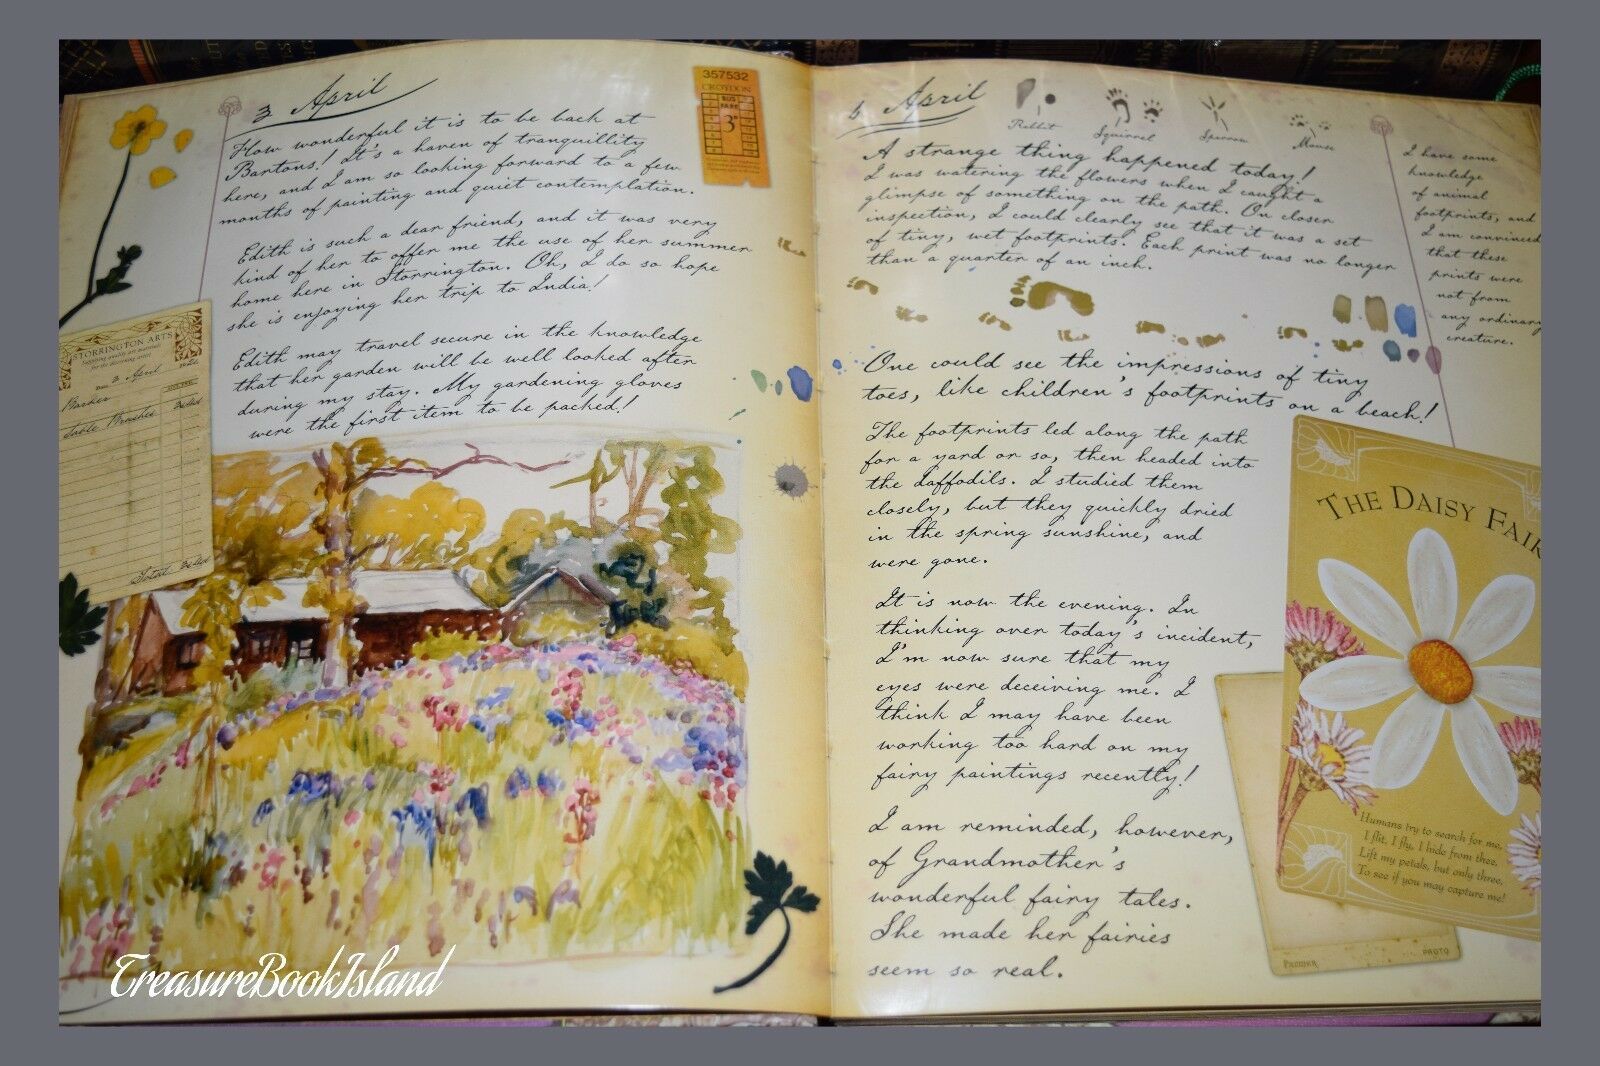 3 April
How wonderful it is to be back at
Bartons! It's a haven of tranquillity
here, and I am so looking forward to a few
months of painting and quiet contemplation.
Edith is such a dear friend, and it was very
kind of her to offer me the use of her summer
home here in Storrington. Oh, I do so hope
she is enjoying her trip to India!
Edith may travel secure in the knowledge
that her garden will be well looked after
during my stay. My gardening gloves
were the first item to be packed!
357532
CROYDON
BUS
FARE
3D
STORRINGTON ARTS
Supplying quality art materials
for the discerning artist
3 April
Sable Brushes
Total
TreasureBookIsland
6 April
Rabbit
Squirrel
Sparrow
Mouse
A strange thing happened today!
I was watering the flowers when I caught a
glimpse of something on the path. On closer
inspection, I could clearly see that it was a set
of tiny, wet footprints. Each print was no longer
than a quarter of an inch.
I have some
knowledge
of animal
footprints, and
I am convinced
that these
prints were
not from
any ordinary
creature.
One could see the impressions of tiny
toes, like children's footprints on a beach!
The footprints led along the path
for a yard or so, then headed into
the daffodils. I studied them
closely, but they quickly dried
in the spring sunshine, and
were gone.
It is now the evening. In
thinking over today's incident,
I'm now sure that my
eyes were deceiving me. I
think I may have been
working too hard on my
fairy paintings recently!
I am reminded, however,
of Grandmother's
wonderful fairy tales.
She made her fairies
seem so real.
THE DAISY FAIR
Humans try to search for me,
I flit, I fly, I hide from thee,
Lift my petals, but only three,
To see if you may capture me!
PREMIER
PHOTO